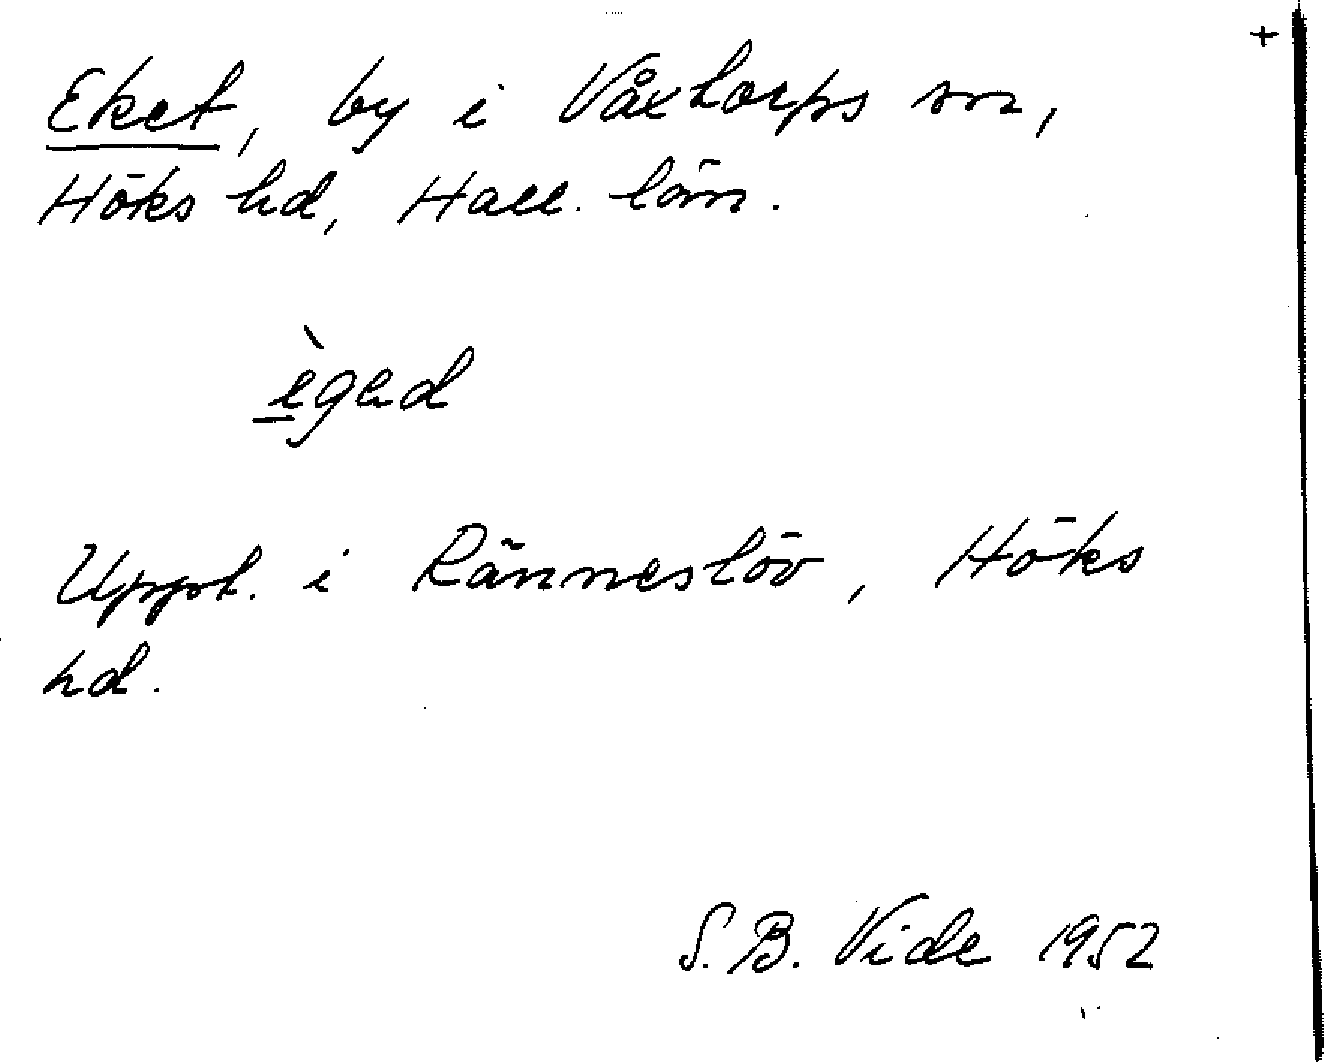 +
Eket, by i Våxtorps sn,
Höks hd, Hall. län.
ègəd
Uppt. i Ränneslöv, Höks
hd.
S.B. Vide 1952